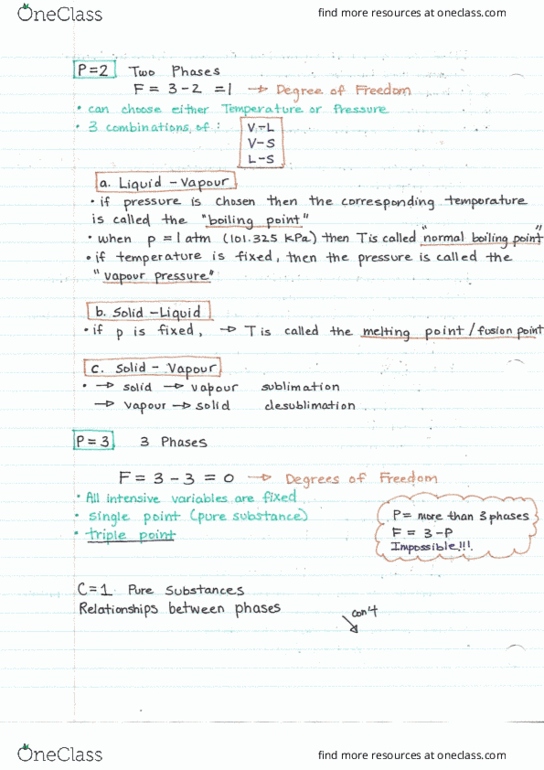 OneClass
find more resources at oneclass.com
P=2 Two Phases
F = 3-2 =1 → Degree of Freedom
• can choose either Temperature or Pressure
• 3 combinations of: V-L
V-S
L-S
a. Liquid - Vapour
• if pressure is chosen then the corresponding temporature
is called the "boiling point"
• when p = 1 atm (101.325 kPa) then T is called "normal boiling point"
• if temperature is fixed, then the pressure is called the
"vapour pressure"
b. Solid - Liquid
• if p is fixed, → T is called the melting point / fusion point
c. Solid - Vapour
• → solid → vapour sublimation
→ vapour → solid desublimation
P=3 3 Phases
F = 3-3 = 0 → Degrees of Freedom
• All intensive variables are fixed
• single point (pure substance)
• triple point
P= more than 3 phases
F = 3-P
Impossible!!!
C=1 Pure Substances
Relationships between phases
con't
OneClass
find more resources at oneclass.com